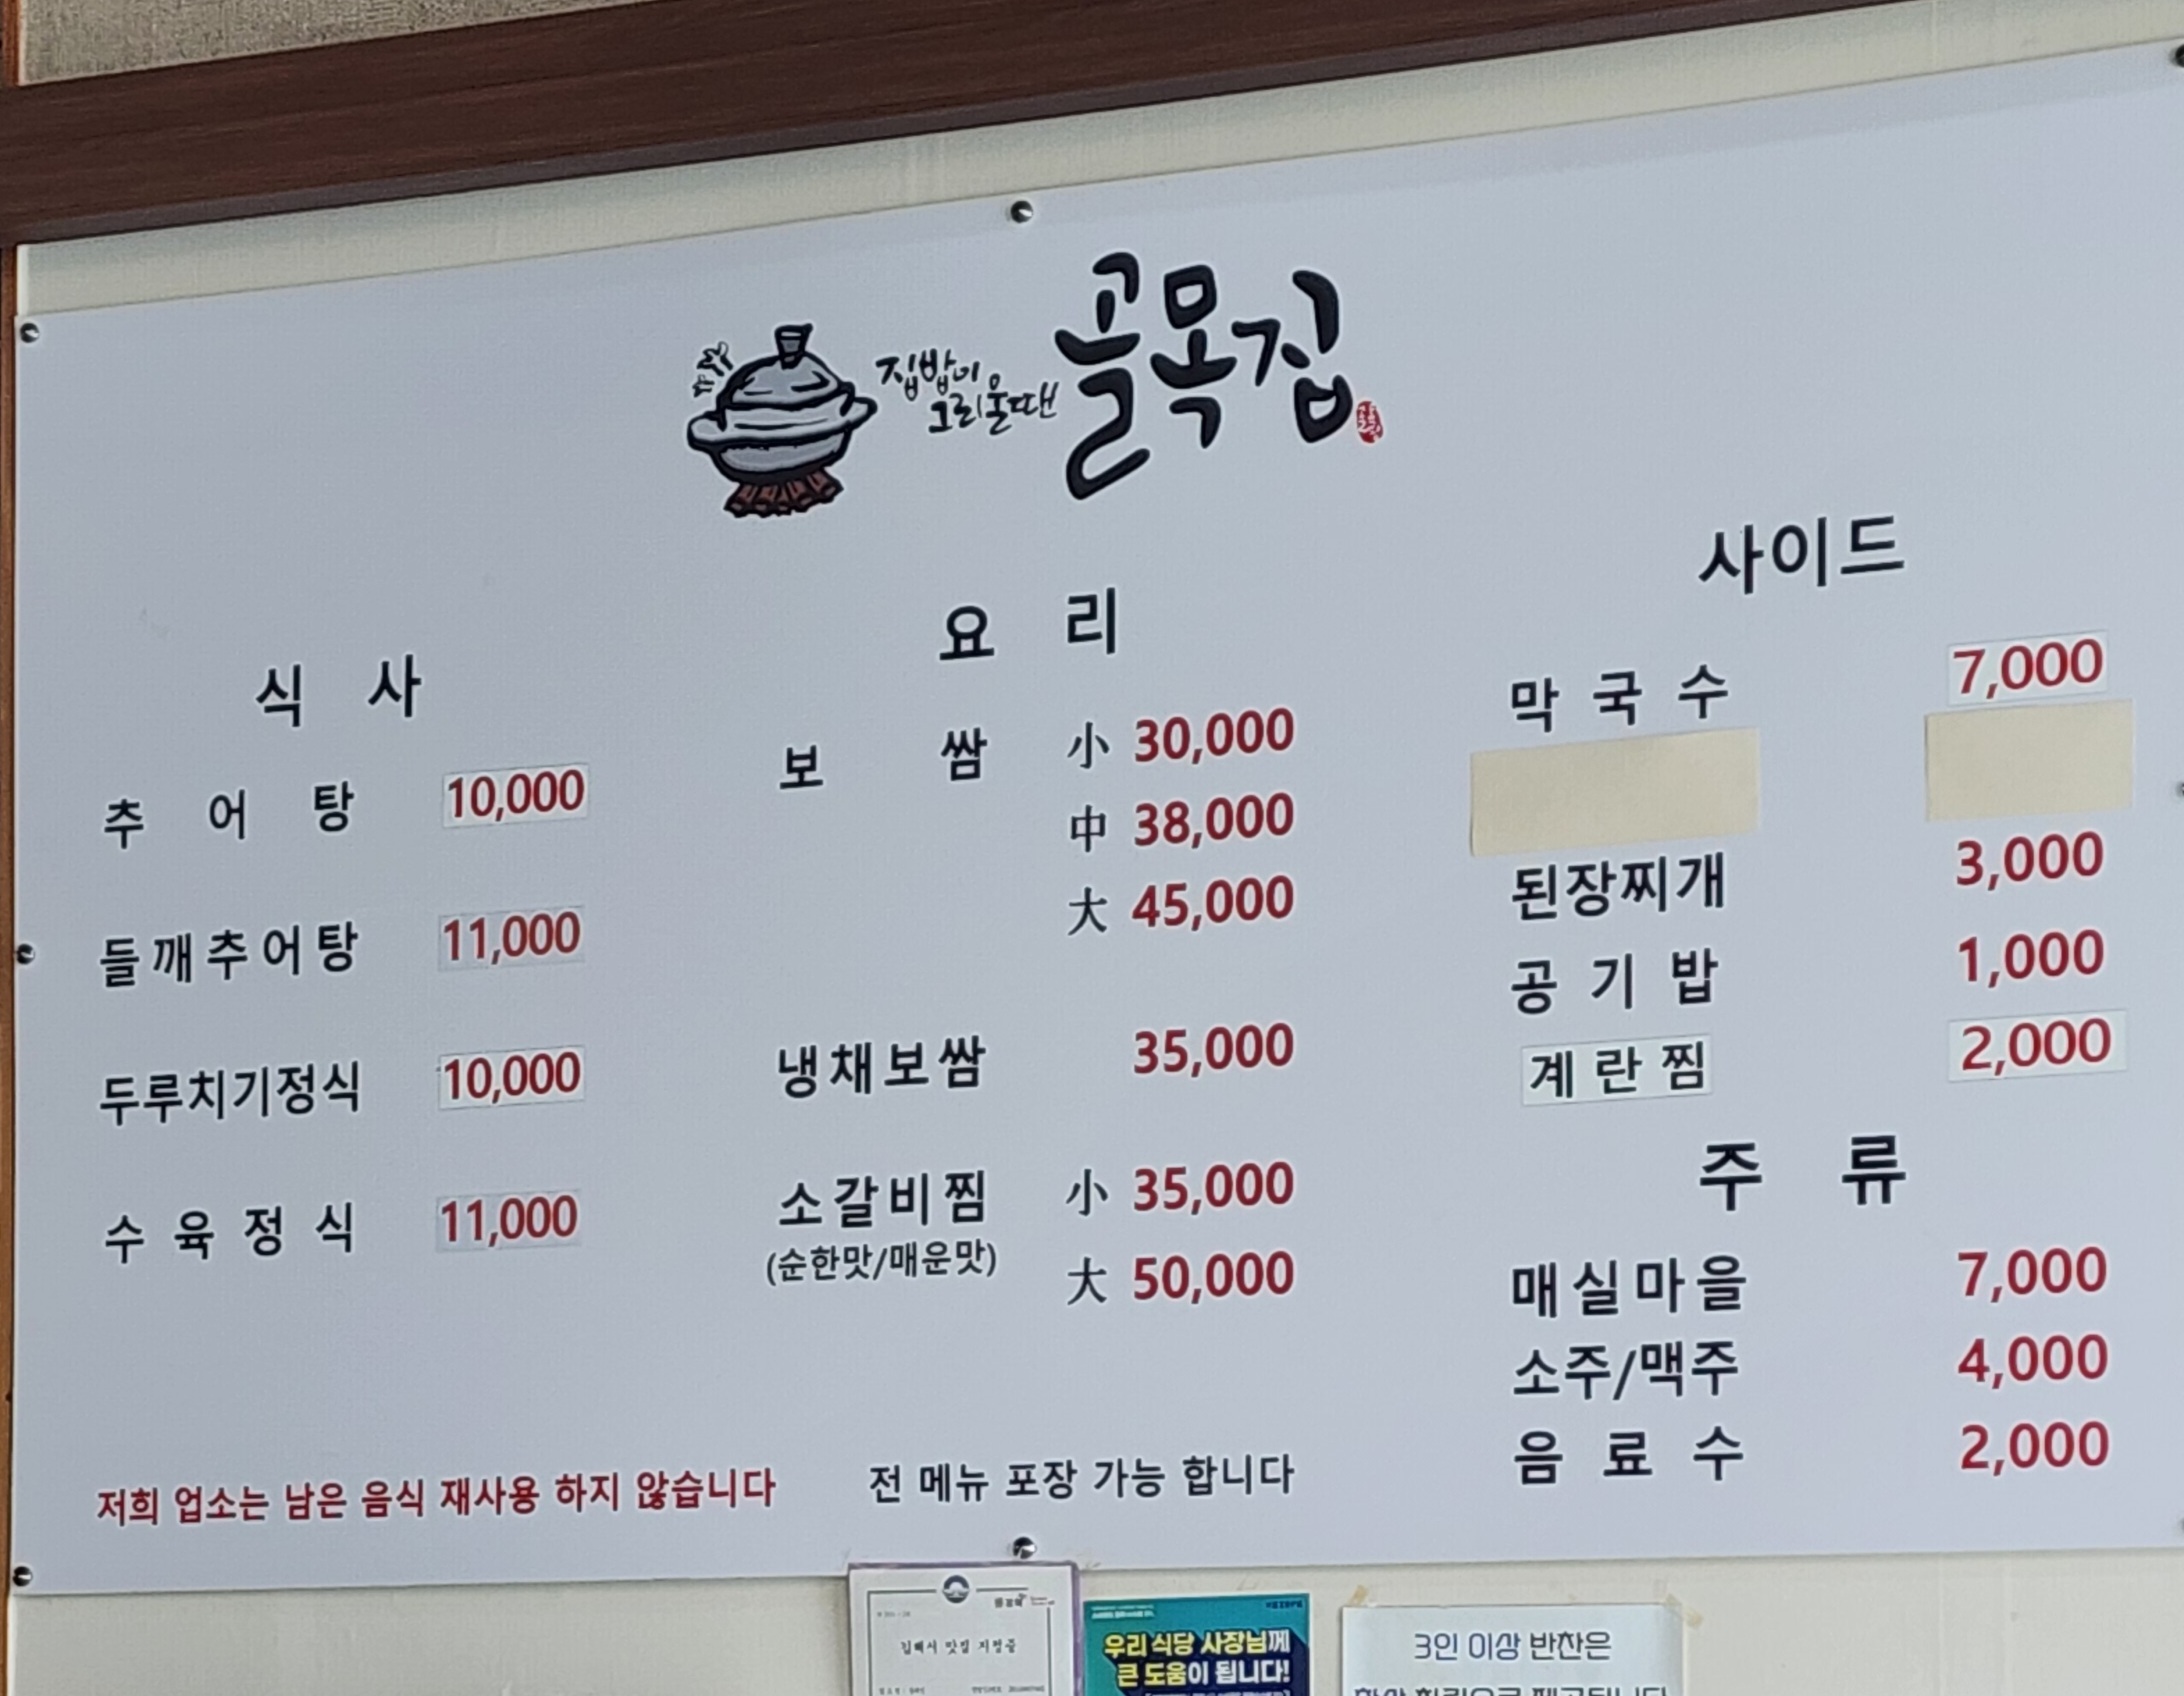 집밥이
그리울땐
골목집
식 사
추 어 탕 10,000
들깨추어탕 11,000
두루치기정식 10,000
수 육 정 식 11,000
요 리
보 쌈 小 30,000
中 38,000
大 45,000
냉채보쌈 35,000
소갈비찜 小 35,000
(순한맛/매운맛)
大 50,000
사이드
막 국 수 7,000
된장찌개 3,000
공 기 밥 1,000
계 란 찜 2,000
주 류
매실마을 7,000
소주/맥주 4,000
음 료 수 2,000
저희 업소는 남은 음식 재사용 하지 않습니다
전 메뉴 포장 가능 합니다
김해시 맛집 지정증
우리 식당 사장님께
큰 도움이 됩니다!
3인 이상 반찬은